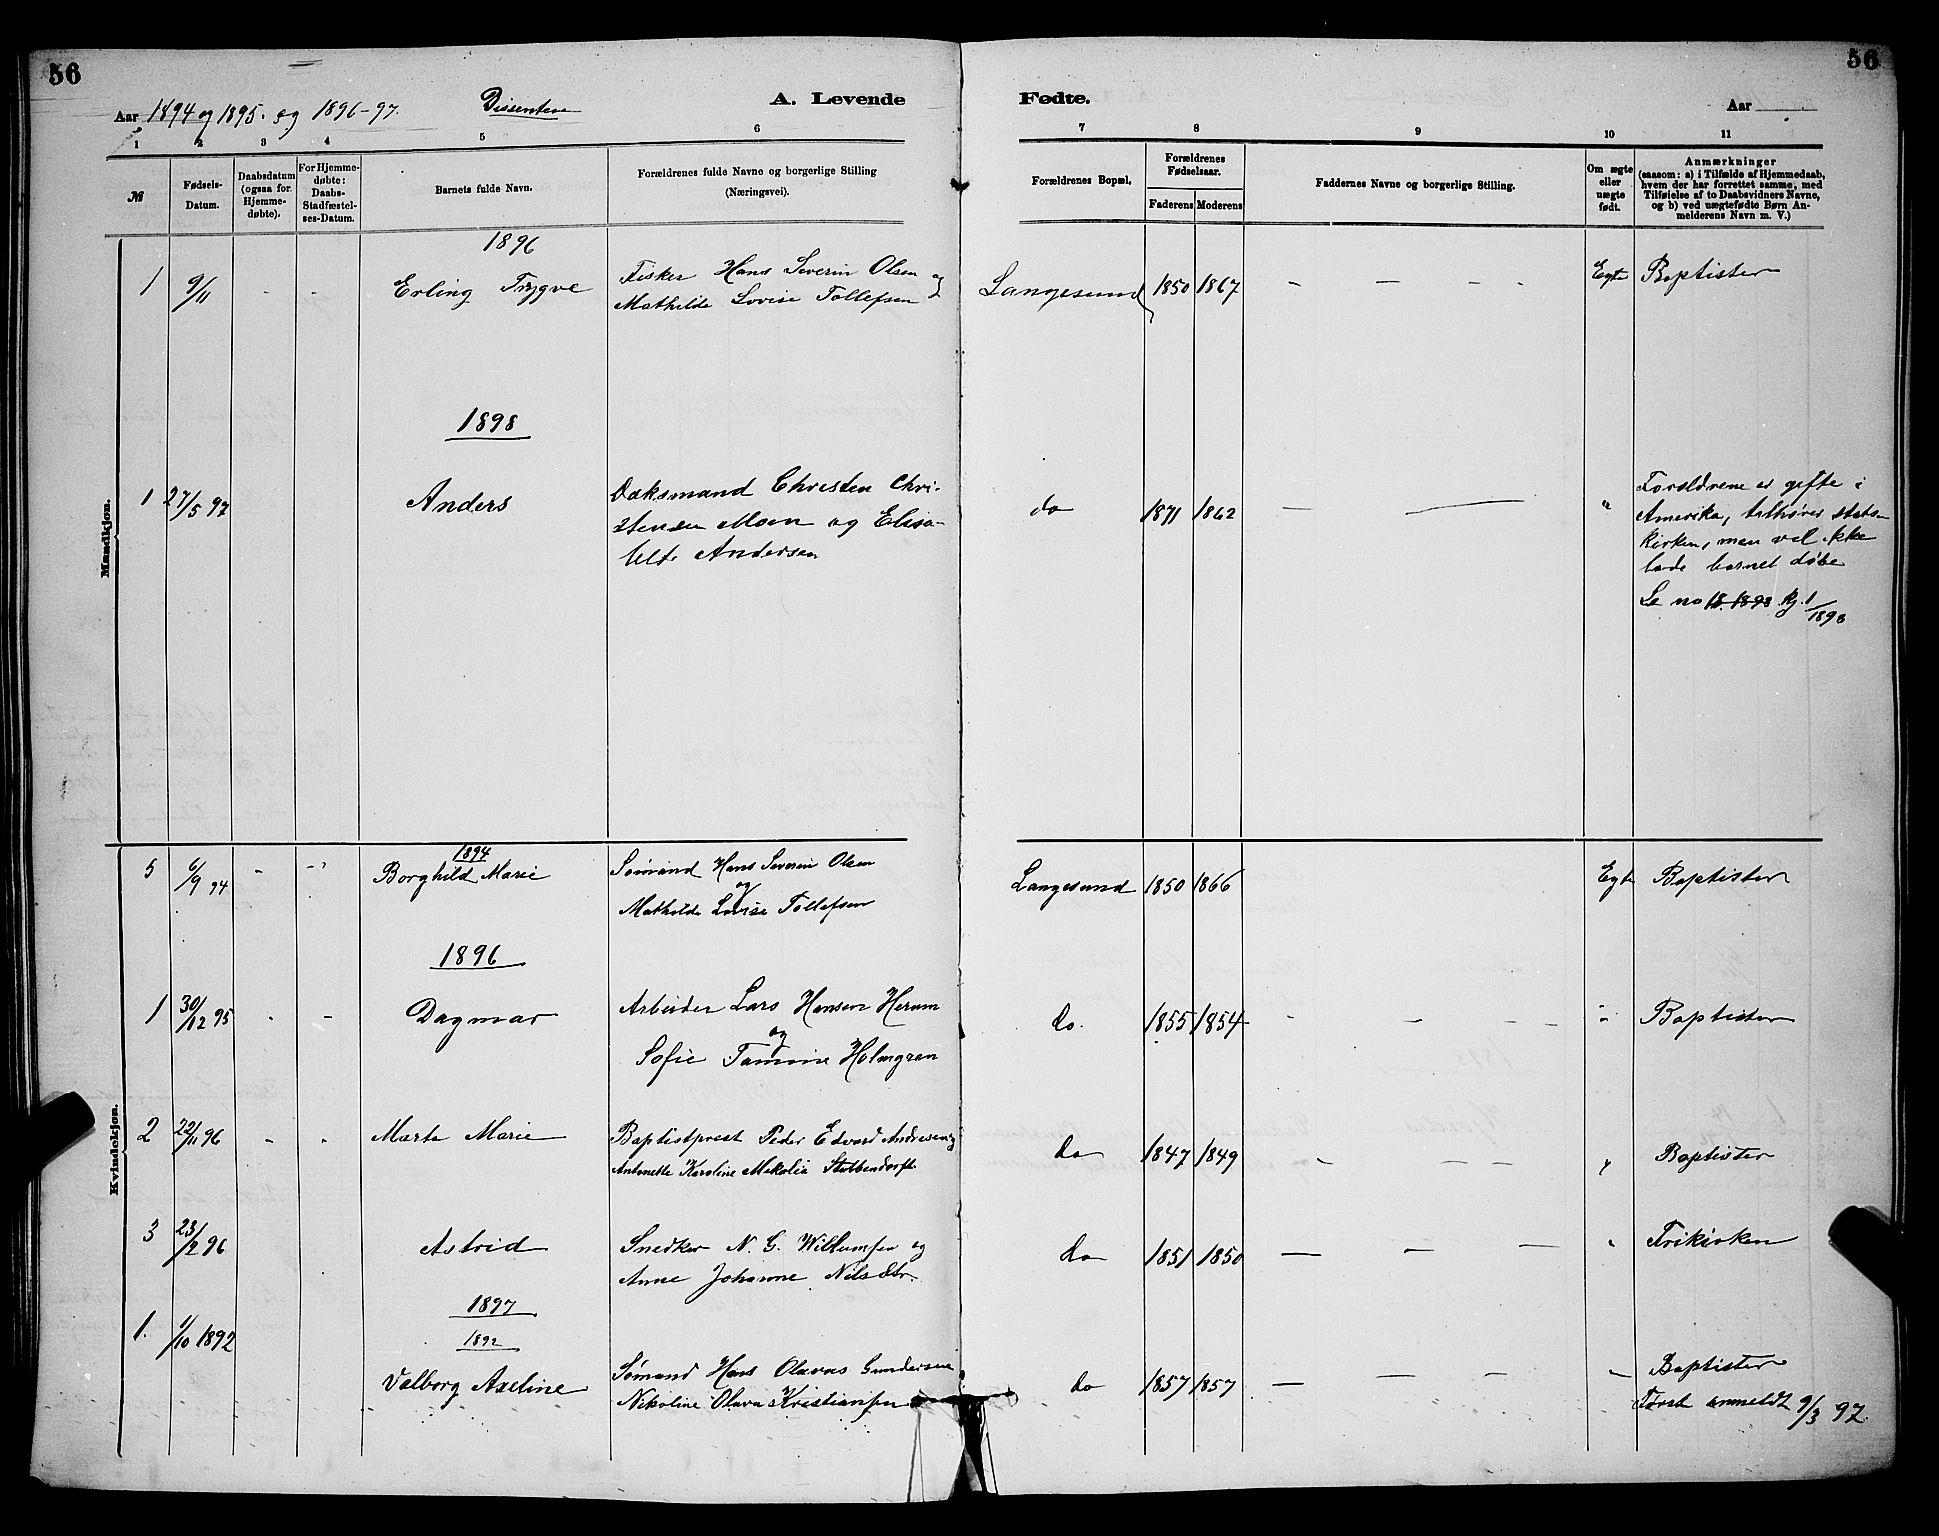 56
56
Aar 1894 og 1895. og 1896-97. Dissentere A. Levende Fødte. Aar
1 2 3 4 5 6 7 8 9 10 11
№
Fødsels-
Datum.
Daabsdatum
(ogsaa for
Hjemme-
døbte).
For Hjemme-
døbte:
Daabs-
Stadfæstel-
ses-Datum.
Barnets fulde Navn.
Forældrenes fulde Navne og borgerlige Stilling
(Næringsvei).
Forældrenes Bopæl.
Forældrenes
Fødselsaar.
Faderens Moderens
Faddernes Navne og borgerlige Stilling.
Om ægte
eller
uægte
født.
Anmærkninger
(saasom: a) i Tilfælde af Hjemmedaab,
hvem der har forrettet samme, med
Tilføielse af to Daabsvidners Navne,
og b) ved uægtefødte Børn An-
melderens Navn m. V.)
Mandkjøn.
1896
1 9/11 - - Erling Trygve
Fisker Hans Severin Olsen og
Mathilde Lovise Tollefsen
Langesund 1850 1867 - - - - Egte Baptister
1898
1 27/5 97 Anders
Daksmand Christen Chri-
stensen Moen og Elisa-
beth Andersen
do 1871 1862 — — "
Forældrene er gifte i
Amerika, tilhører stats-
kirken, men vil ikke
lade barnet døbe
Se no 18. 1898 kj. 1/1898
Kvindekjøn.
1894
5 6/9 94 - - Borghild Marie
Sømand Hans Severin Olsen
og
Mathilde Lovise Tollefsen
Langesund 1850 1866 Egte Baptister
1896
1 30/12 95 - - Dagmar
Arbeider Lars Hansen Herum
og
Sofie Tomine Holmgren
do. 1855 1854 - - - - " Baptister
2 22/11 96 - - Marta Marie
Baptistprest Peder Edvard Andresen og
Antonette Karoline Mikolia Stubbendorft
do 1847 1849 - - - - " Baptister
3 23/2 96 Astrid
Snedker N. G. Willumsen og
Anne Johanne Nilsdtr.
do 1851 1850 — — — " Frikirken
1897
1892
1. 1/10 1892 Valborg Axeline
Sømand Hans Olavus Gundersen
Nikoline Olava Kristiansen
do 1857 1857 — — — " Baptister
Først anmeldt 9/3 97.